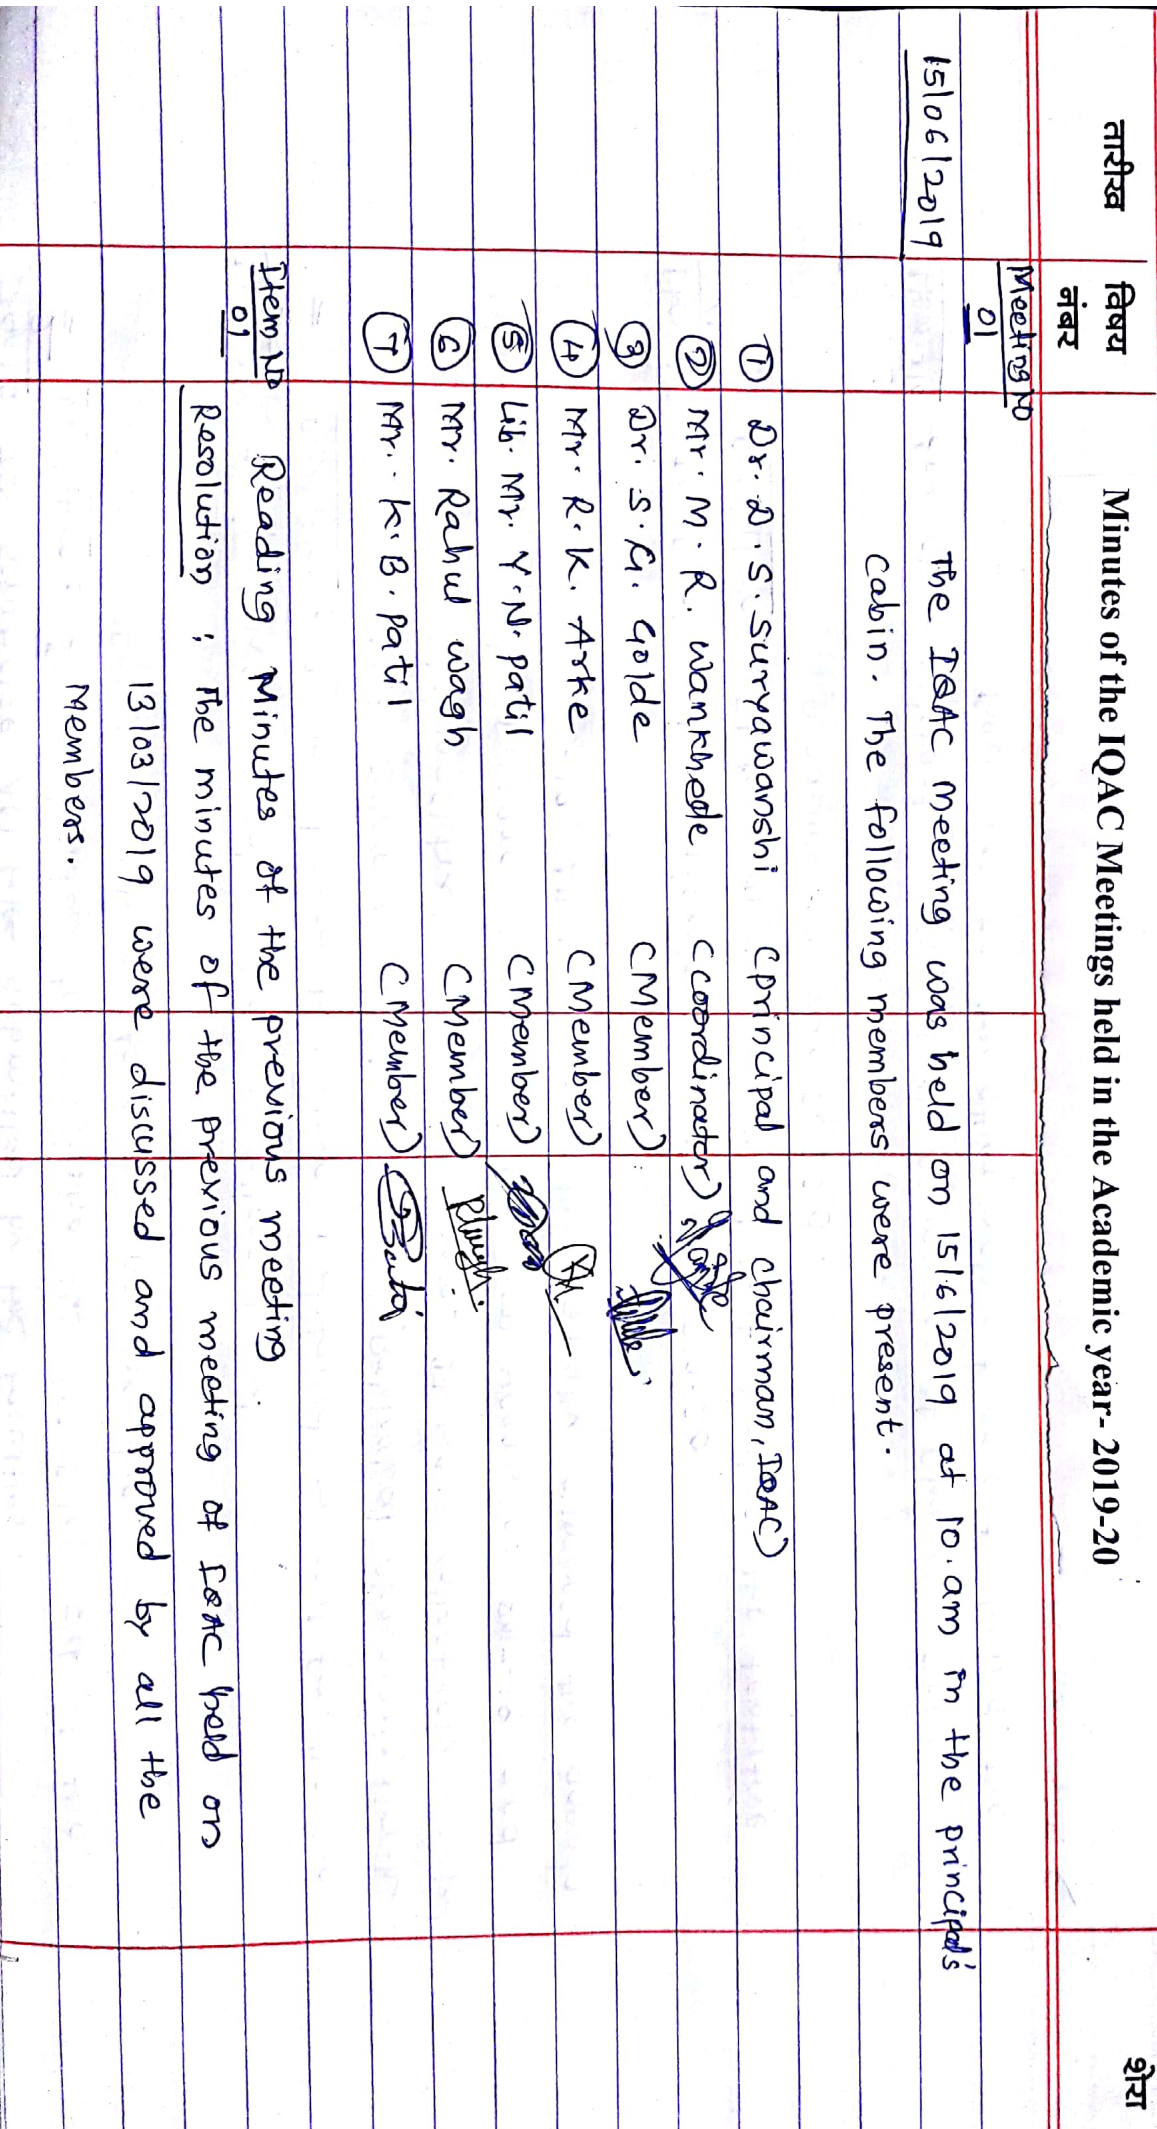 तारीख विषय नंबर Minutes of the IQAC Meetings held in the Academic year- 2019-20 शेरा
Meeting No
01
15/06/2019 The IQAC meeting was held on 15/6/2019 at 10.am in the principal's
cabin. The following members were present.
① Dr. D. S. Suryawanshi (principal and chairman, IQAC)
② Mr. M. R. Wankhede (coordinator)
③ Dr. S. G. Golde (Member)
④ Mr. R. K. Arke (Member)
⑤ Lib. Mr. Y. N. patil (Member)
⑥ Mr. Rahul wagh (Member)
⑦ Mr. K. B. patil (Member)
Item No Reading Minutes of the previous meeting
01
Resolution : The minutes of the previous meeting of IQAC held on
13/03/2019 were discussed and approved by all the
Members.